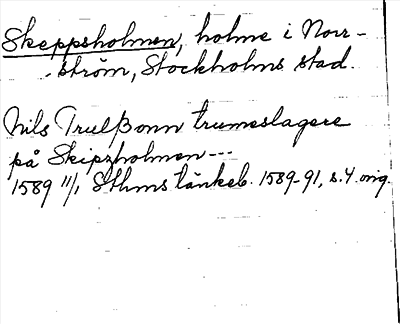 Skeppsholmen, holme i Norr-
ström, Stockholms stad.
Nils Trulßonn trumeslagere
på Skipzholmen ---
1589 11/1, Sthms tänkeb. 1589-91, s. 4. orig.